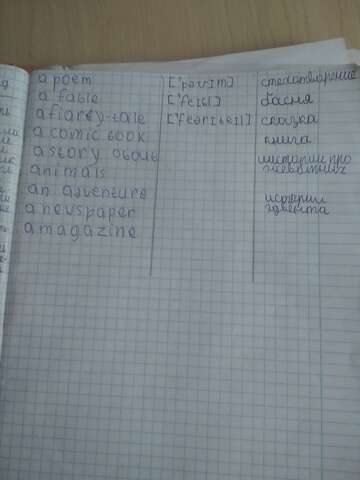 a poem ['pəʊɪm] стихотворение
a fable ['feɪbl] басня
a fiarey-tale ['feərɪteɪl] сказка
a comic book книга
a story about истории про
animals животных
an adventure истории
a newspaper адвента
a magazine